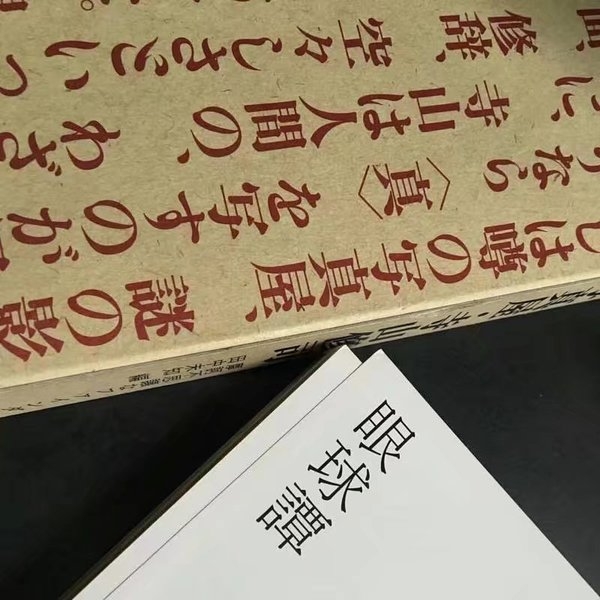 しは噂の写真屋、謎の影
なら〈真〉を写すのが
に、寺山は人間の、わざ
修辞、空々しさといっ
写真屋・寺山修司
田中未知 編
眼球譚